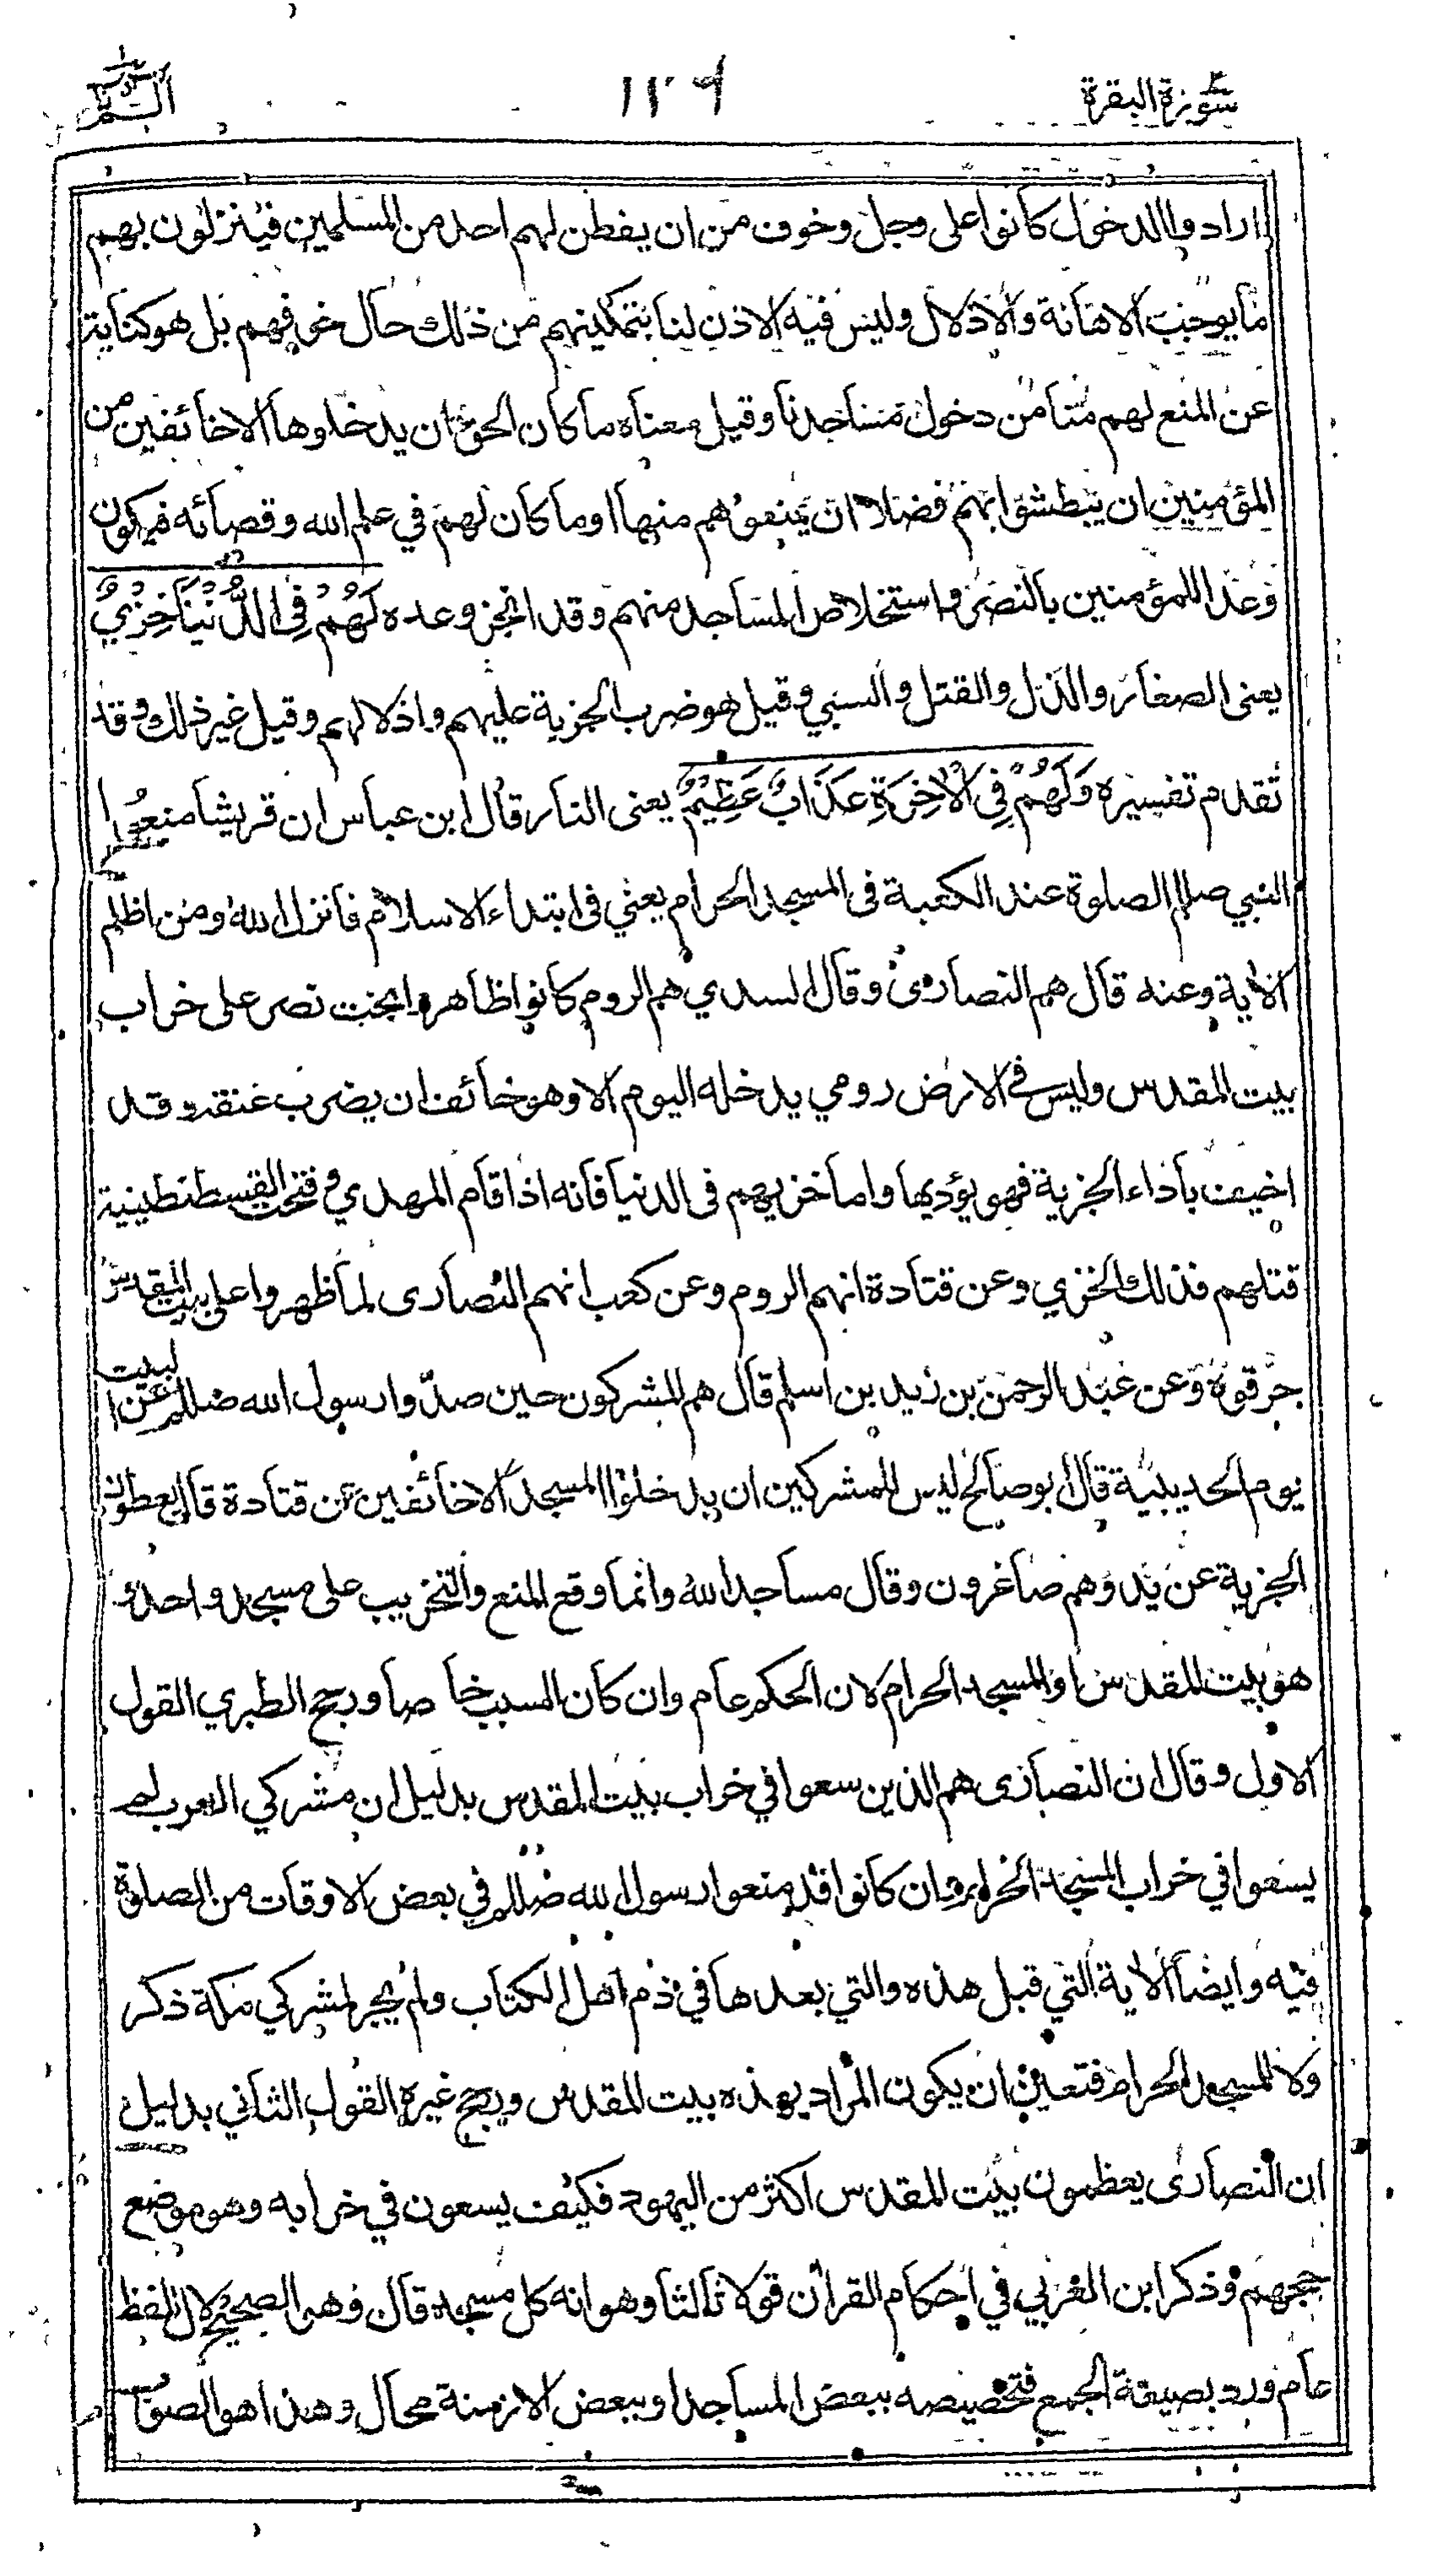 سورة البقرة ١٢٩ الٓمّٓ
ارادوا الدخول كانوا على وجل وخوف من ان يفطن لهم احد من المسلمين فينزلون بهم
ما يوجب الاهانة والاذلال وليس فيه الاذن لنا بتمكينهم من ذلك حال خوفهم بل هو كناية
عن المنع لهم منا من دخول مساجدنا وقيل معناه ما كان الحق ان يدخلوها الا خائفين من
المؤمنين ان يبطشوا بهم فضلا ان يمنعوهم منها او ما كان لهم في علم الله وقضائه فيكون
وعد اللمؤمنين بالنصر واستخلاص المساجد منهم وقد انجز وعده لَهُمْ فِي الدُّنْيَا خِزْيٌ
يعنى الصغار والذل والقتل والسبي وقيل هو ضرب الجزية عليهم واذلالهم وقيل غير ذلك وقد
تقدم تفسيره وَلَهُمْ فِي الْاٰخِرَةِ عَذَابٌ عَظِيْمٌ يعنى النار قال ابن عباس ان قريشا منعوا
النبي صللم الصلوة عند الكعبة فى المسجد الحرام يعني فى ابتداء الاسلام فانزل الله ومن اظلم
الاية وعنه قال هم النصارى وقال السدي هم الروم كانوا ظاهروا بخت نصر على خراب
بيت المقدس وليس في الارض رومي يدخله اليوم الا وهو خائف ان يضرب عنقه وقد
اخيف باداء الجزية فهو يؤديها واما خزيهم فى الدنيا فانه اذا قام المهدي وفتحت القسطنطينية
قتلهم فذلك الخزي وعن قتادة انهم الروم وعن كعب انهم النصارى لما ظهروا على بيت المقدس
حرقوه وعن عبد الرحمن بن زيد بن اسلم قال هم المشركون حين صدّوا رسول الله صللم عن البيت
يوم الحديبية قال ابو صالح ليس للمشركين ان يدخلوا المسجد الا خائفين عن قتادة قال يعطون
الجزية عن يد وهم صاغرون وقال مساجد الله وانما وقع المنع والتخريب على مسجد واحد
هو بيت المقدس او المسجد الحرام لان الحكم عام وان كان السبب خاصا ورجح الطبري القول
الاول وقال ان النصارى هم الذين سعوا في خراب بيت المقدس بدليل ان مشركي العرب لم
يسعوا في خراب المسجد الحرام وان كانوا قد منعوا رسول الله صللم في بعض الاوقات من الصلوة
فيه وايضا الاية التي قبل هذه والتي بعدها في ذم اهل الكتاب ولم يجر لمشركي مكة ذكر
ولا للمسجد الحرام فتعين ان يكون المراد بهذه بيت المقدس ورجح غيره القول الثاني بدليل
ان النصارى يعظمون بيت المقدس اكثر من اليهود فكيف يسعون في خرابه وهو موضع
حجهم وذكر ابن العربي في احكام القران قولا ثالثا وهو انه كل مسجد قال وهو الصحيح لان اللفظ
عام ورد بصيغة الجمع فتخصيصه ببعض المساجد او ببعض الازمنة محال وهذا هو الصواب